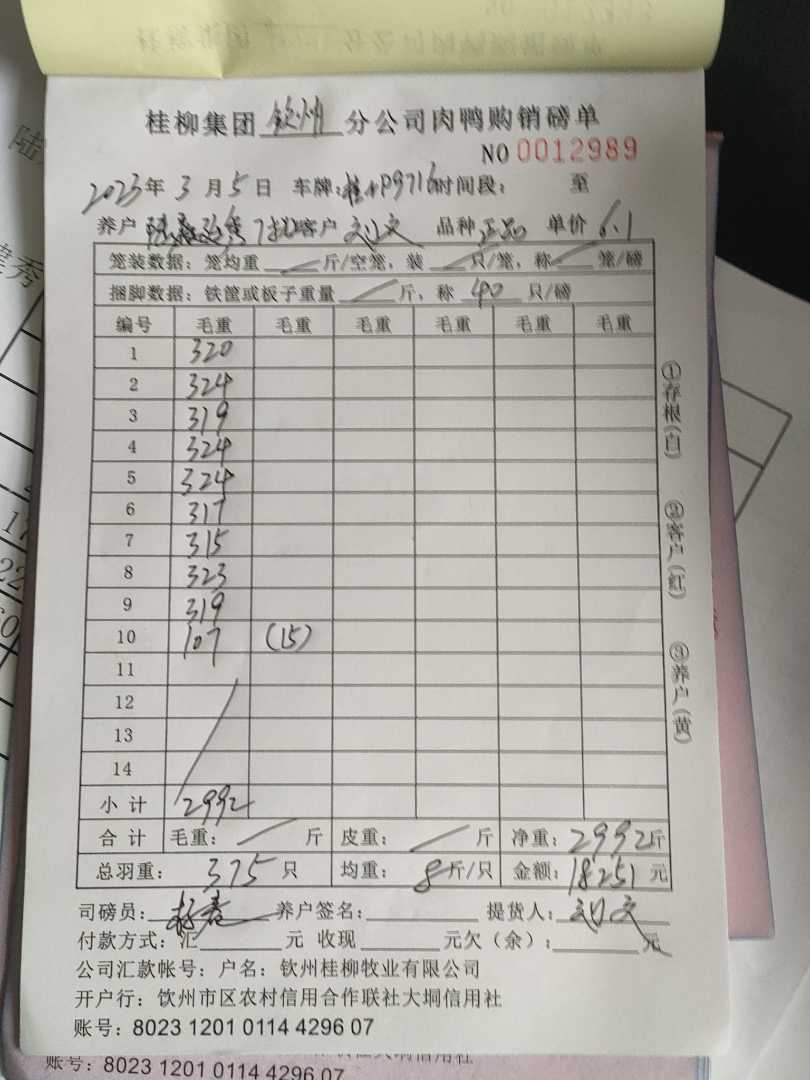 桂柳集团 钦州 分公司肉鸭购销磅单
NO 0012989
2023年 3月 5日 车牌:桂 P9716 时间段: 至
养户 7批 客户 刘文 品种 正品 单价 6.1
笼装数据:笼均重 斤/空笼,装 只/笼,称 笼/磅
捆脚数据:铁筐或板子重量 斤,称 40 只/磅
编号 毛重 毛重 毛重 毛重 毛重 毛重
1 320
2 324
3 319
4 324
5 324
6 317
7 315
8 323
9 319
10 107 (15)
11
12
13
14
小计 2992
合计 毛重: 斤 皮重: 斤 净重:2992斤
总羽重: 375 只 均重: 8斤/只 金额:18251元
司磅员: 养户签名: 提货人:刘文
付款方式:汇 元 收现 元欠(余): 元
公司汇款帐号:户名:钦州桂柳牧业有限公司
开户行:钦州市区农村信用合作联社大垌信用社
账号:8023 1201 0114 4296 07
①存根(白)
②客户(红)
③养户(黄)
账号:8023 1201 0114 4296 07